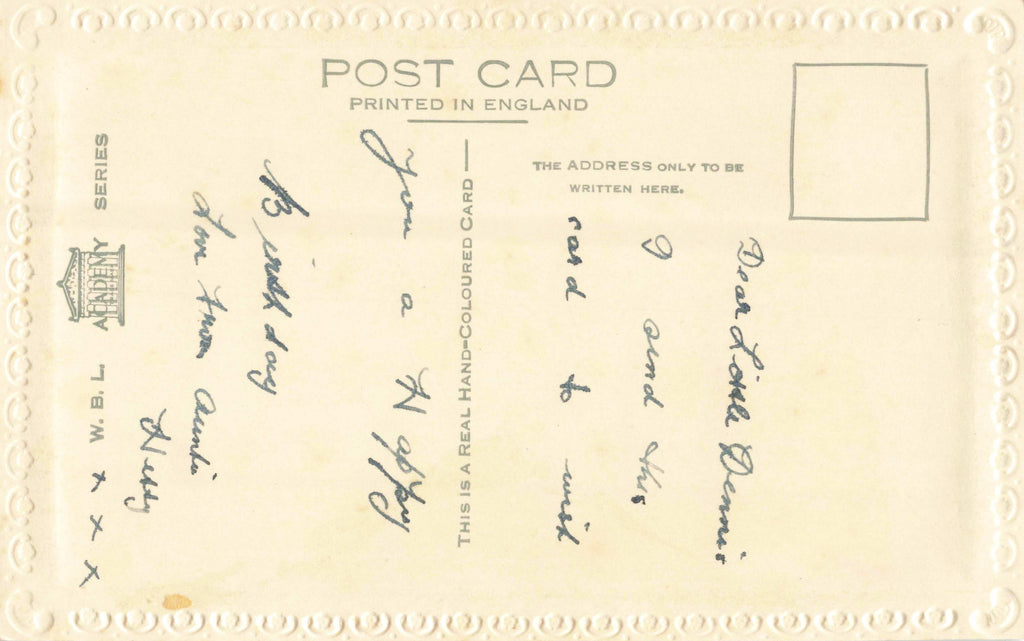 POST CARD
PRINTED IN ENGLAND
THE ADDRESS ONLY TO BE
WRITTEN HERE.
THIS IS A REAL HAND-COLOURED CARD
W. B. L. ACADEMY SERIES
Dear Little Dennis
I send this
card to wish
you a Happy
Birthday
Love from Auntie
Hetty
x x x